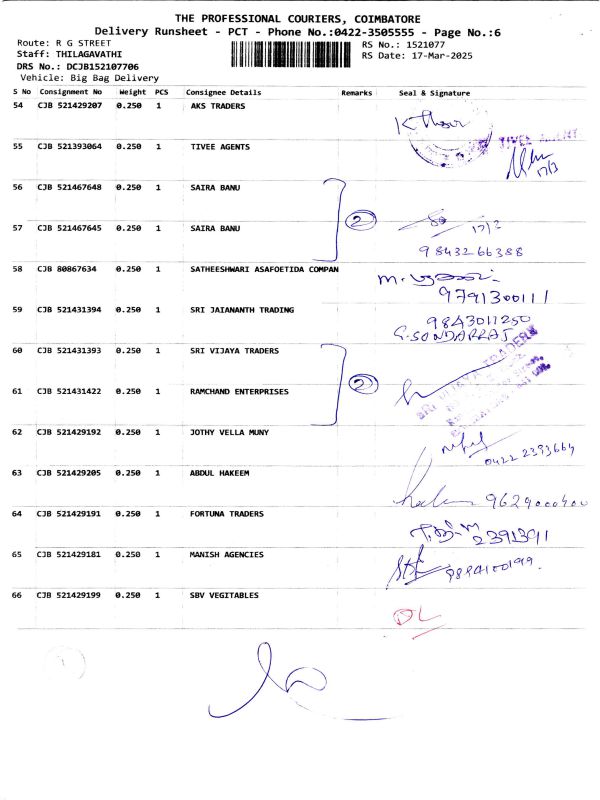 THE PROFESSIONAL COURIERS, COIMBATORE
Delivery Runsheet - PCT - Phone No.:0422-3505555 - Page No.:6
Route: R G STREET
Staff: THILAGAVATHI
DRS No.: DCJB152107706
Vehicle: Big Bag Delivery
RS No.: 1521077
RS Date: 17-Mar-2025
S No Consignment No Weight PCS Consignee Details Remarks Seal & Signature
54 CJB 521429207 0.250 1 AKS TRADERS
55 CJB 521393064 0.250 1 TIVEE AGENTS TIVEE AGENT
17/3
56 CJB 521467648 0.250 1 SAIRA BANU
2
57 CJB 521467645 0.250 1 SAIRA BANU 17/3
9843266388
58 CJB 80867634 0.250 1 SATHEESHWARI ASAFOETIDA COMPAN
9791300111
59 CJB 521431394 0.250 1 SRI JAIANANTH TRADING 9843011250
G.SONDARRAJ
60 CJB 521431393 0.250 1 SRI VIJAYA TRADERS
SRI VIJAYA TRADERS
2
61 CJB 521431422 0.250 1 RAMCHAND ENTERPRISES
62 CJB 521429192 0.250 1 JOTHY VELLA MUNY
0422 2393664
63 CJB 521429205 0.250 1 ABDUL HAKEEM
9629000400
64 CJB 521429191 0.250 1 FORTUNA TRADERS
2391391
65 CJB 521429181 0.250 1 MANISH AGENCIES
66 CJB 521429199 0.250 1 SBV VEGITABLES
DL